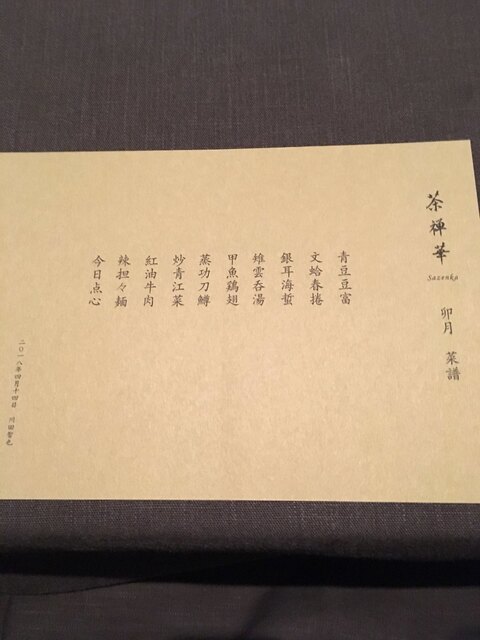 茶禅華
Sazenka
卯月　菜譜
青豆豆富
文蛤春捲
銀耳海蜇
雉雲呑湯
甲魚鶏翅
蒸功刀鱒
炒青江菜
紅油牛肉
辣担々麺
今日点心
二〇一八年四月十四日　川田智也